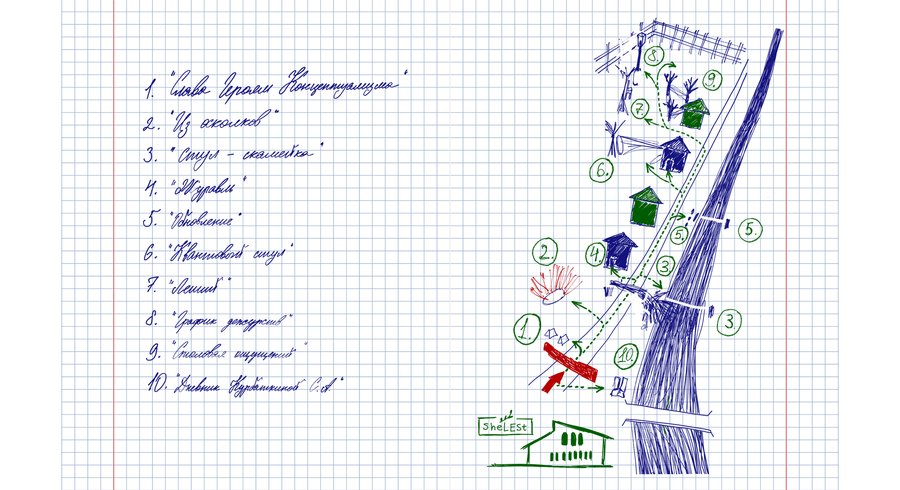 1. "Слава Героям Концептуализма"
2. "Из осколков"
3. "Стул - скамейка"
4. "Журавль"
5. "Обновление"
6. "Квантовый стул"
7. "Леший"
8. "График дежурств"
9. "Столовая ощущений"
10. "Дневник Курбаткиной С.А"
8.
9.
7.
6.
5.
5.
2.
4.
3.
3.
1.
10.
SheLESt